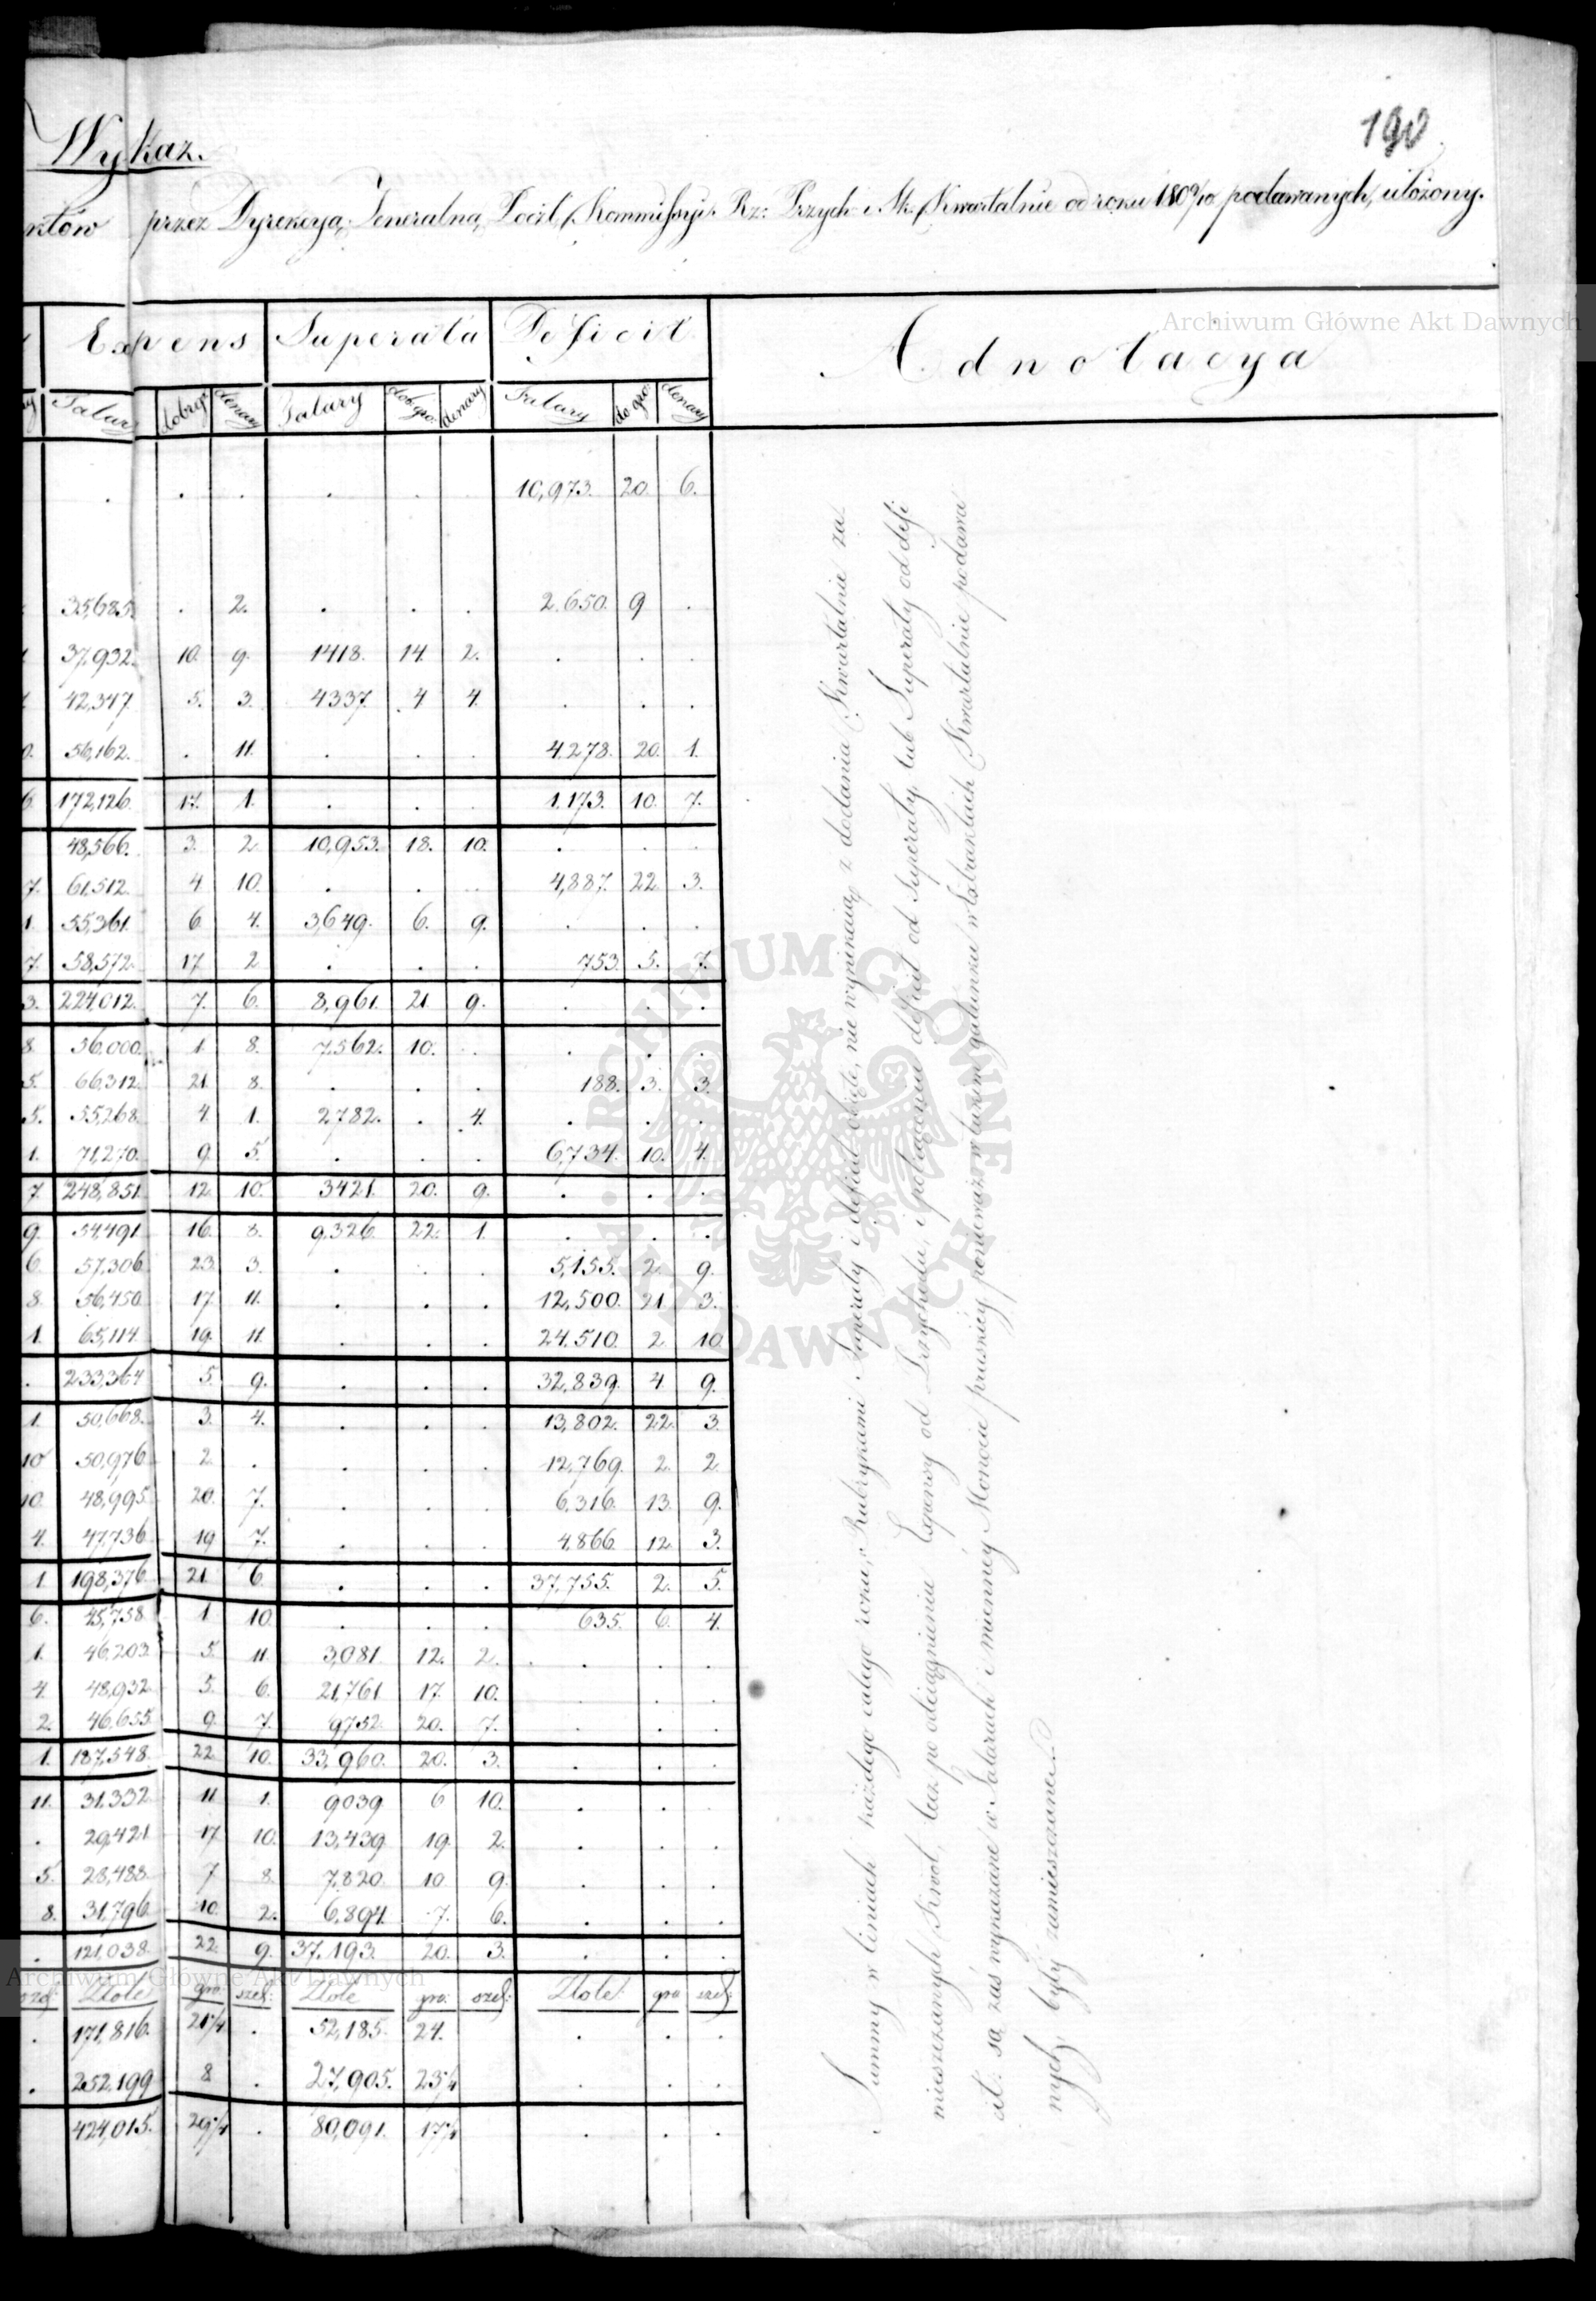 190
Wykaz.
nktów przez Dyrekcyą Jeneralną Poczt, Kommissyi Rz: Przych: i Sk: Kwartalnie od roku 180 9/10 podawanych, ułożony.
Expens Superata Deficit Adnotacya
Talary dobrgr denary Talary dob gro: denary Talary do gro: denary
. . . . . 10,973. 20. 6.
35,685. . 2. . . . 2.650. 9. .
37,932. 10. 9. 1418. 14. 2. . . .
42,347. 5. 3. 4337. 4. 4. . . .
0. 56,162. . 11. . . . 4.278. 20. 1.
6. 172,126. 17. 1. . . . 1.173. 10. 7.
48,566. 3. 2. 10,953. 18. 10. . . .
7. 61,512. 4. 10. . . . 4,887. 22. 3.
1. 55,361. 6. 4. 3,649. 6. 9. . . .
7. 58,572. 17. 2. . . . 753. 5. 7.
3. 224,012. 7. 6. 8,961. 21. 9. . . .
8. 56,000. 1. 8. 7,562. 10. . . . .
5. 66,312. 21. 8. . . . 188. 3. 3.
5. 55,268. 4. 1. 2,782. . 4. . . .
1. 71,270. 9. 5. . . . 6,734. 10. 4.
7. 248,851. 12. 10. 3421. 20. 9. . . .
9. 54,491. 16. 8. 9,326. 22. 1. . . .
6. 57,306. 23. 3. . . . 5,155. 2. 9.
8. 56,450. 17. 11. . . . 12,500. 21. 3.
1. 65,114. 19. 11. . . . 24.510. 2. 10.
. 233,364. 5. 9. . . . 32,839. 4. 9.
1. 50,668. 3. 4. . . . 13,802. 22. 3.
10 50,976. 2. . . . . 12,769. 2. 2.
10. 48,995. 20. 7. . . . 6,316. 13. 9.
4. 47,736. 19. 7. . . . 4,866. 12. 3.
1. 198,376. 21. 6. . . . 37,755. 2. 5.
6. 45,758. 1. 10. . . . 635. 6. 4.
1. 46,203. 5. 11. 3,081. 12. 2. . . .
4. 48,932. 5. 6. 21,761. 17. 10. . . .
2. 46,655. 9. 7. 9752. 20. 7. . . .
1. 187,548. 22. 10. 33,960. 20. 3. . . .
11. 31,332. 11. 1. 9039. 6. 10. . . .
. 29,421. 17. 10. 13,439. 19. 2. . . .
5. 28,488. 7. 8. 7,820. 10. 9. . . .
8. 31,796. 10. 2. 6,894. 7. 6. . . .
. 121,038. 22. 9. 37,193. 20. 3. . . .
szel: Złote gro: szel: Złote gro: szel: Złote gro szel:
. 171,816. 21 1/4 . 52,185. 24. . . .
. 252,199. 8 . 27,905. 23 1/4 . . .
424,015. 29 1/4 . 80,091. 17 1/4 . . .
Summy w liniach każdego całego roku, Rubrykami Superaty i deficit objęte, nie wynikaią z dodania Kwartalnie za
mieszczanych Kwot, lecz po odciągnieniu Expensy od Przychodu, i potrąceniu deficit od Superaty, lub Superaty od defi
cit: są zaś wykazane w Talarach i mienney Monecie pruskiey ponieważ w takim gatunku w Abszaitach Kwartalnie podawa
nych, były zamieszczane.
Archiwum Główne Akt Dawnych
ARCHIWUM GŁÓWNE AKT DAWNYCH
Archiwum Główne Akt Dawnych